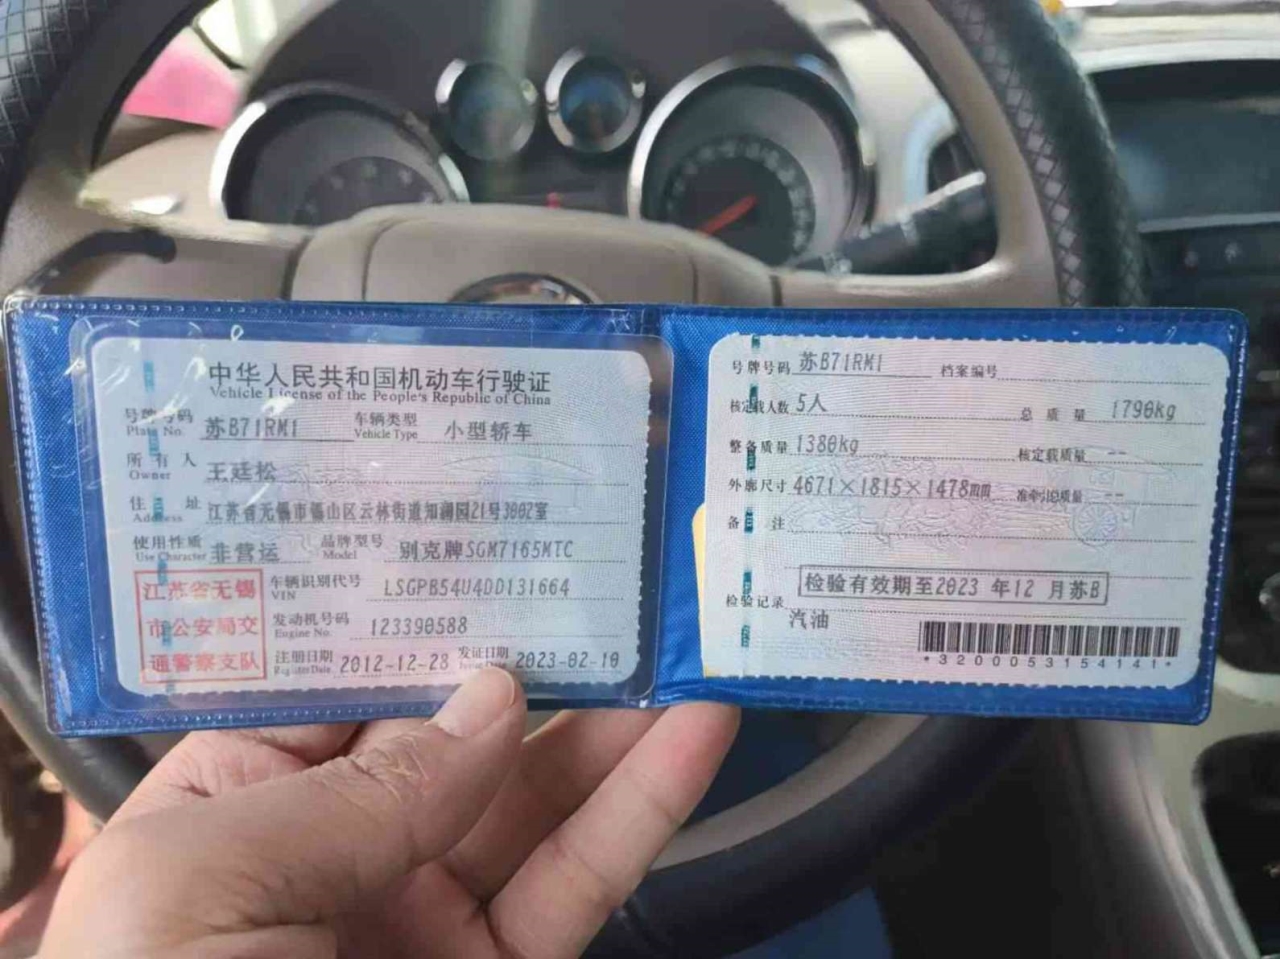 中华人民共和国机动车行驶证
Vehicle License of the People's Republic of China
号牌号码 苏B71RM1 车辆类型 小型轿车
Plate No. Vehicle Type
所有人 王廷松
Owner
住址 江苏省无锡市锡山区云林街道知澜园21号3002室
Address
使用性质 非营运 品牌型号 别克牌SGM7165MTC
Use Character Model
江苏省无锡
市公安局交
通警察支队
车辆识别代号 LSGPB54U4DD131664
VIN
发动机号码 123390588
Engine No.
注册日期 2012-12-28 发证日期 2023-02-10
Register Date Issue Date
号牌号码 苏B71RM1 档案编号
核定载人数 5人 总质量 1790kg
整备质量 1380kg 核定载质量 --
外廓尺寸 4671×1815×1478mm 准牵引总质量 --
备注
检验有效期至2023年12月苏B
检验记录
汽油
*3200053154141*